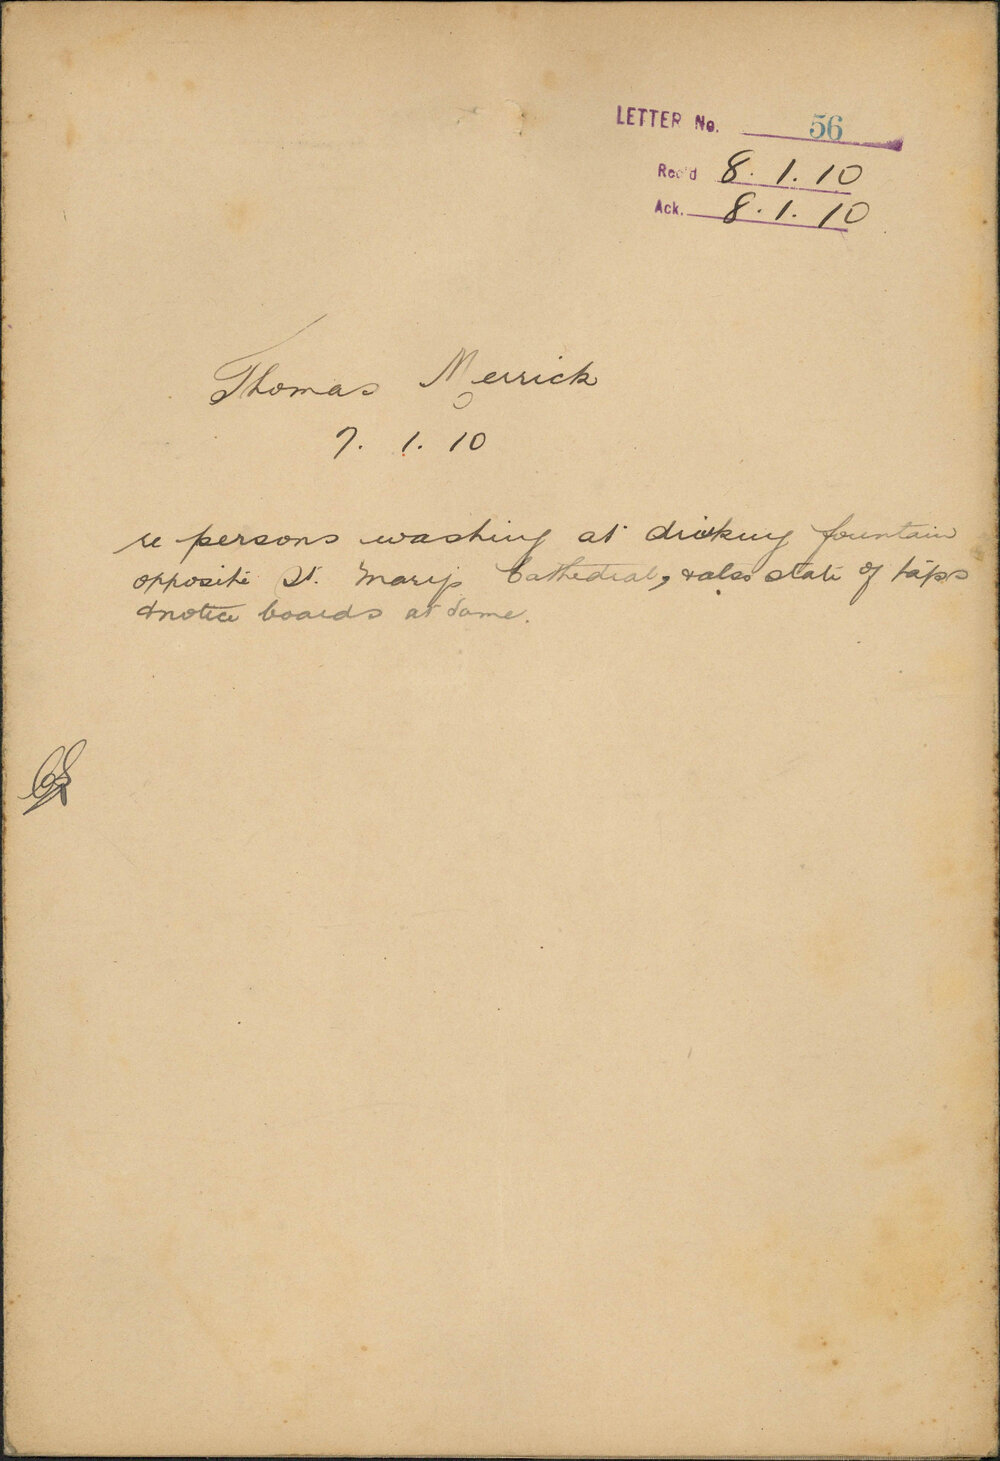 LETTER No. 56
Rec'd 8.1.10
Ack. 8.1.10
Thomas Merrick
7.1.10
re persons washing at drinking fountain
opposite St. Mary's Cathedral, & also state of taps
& notice boards at same.